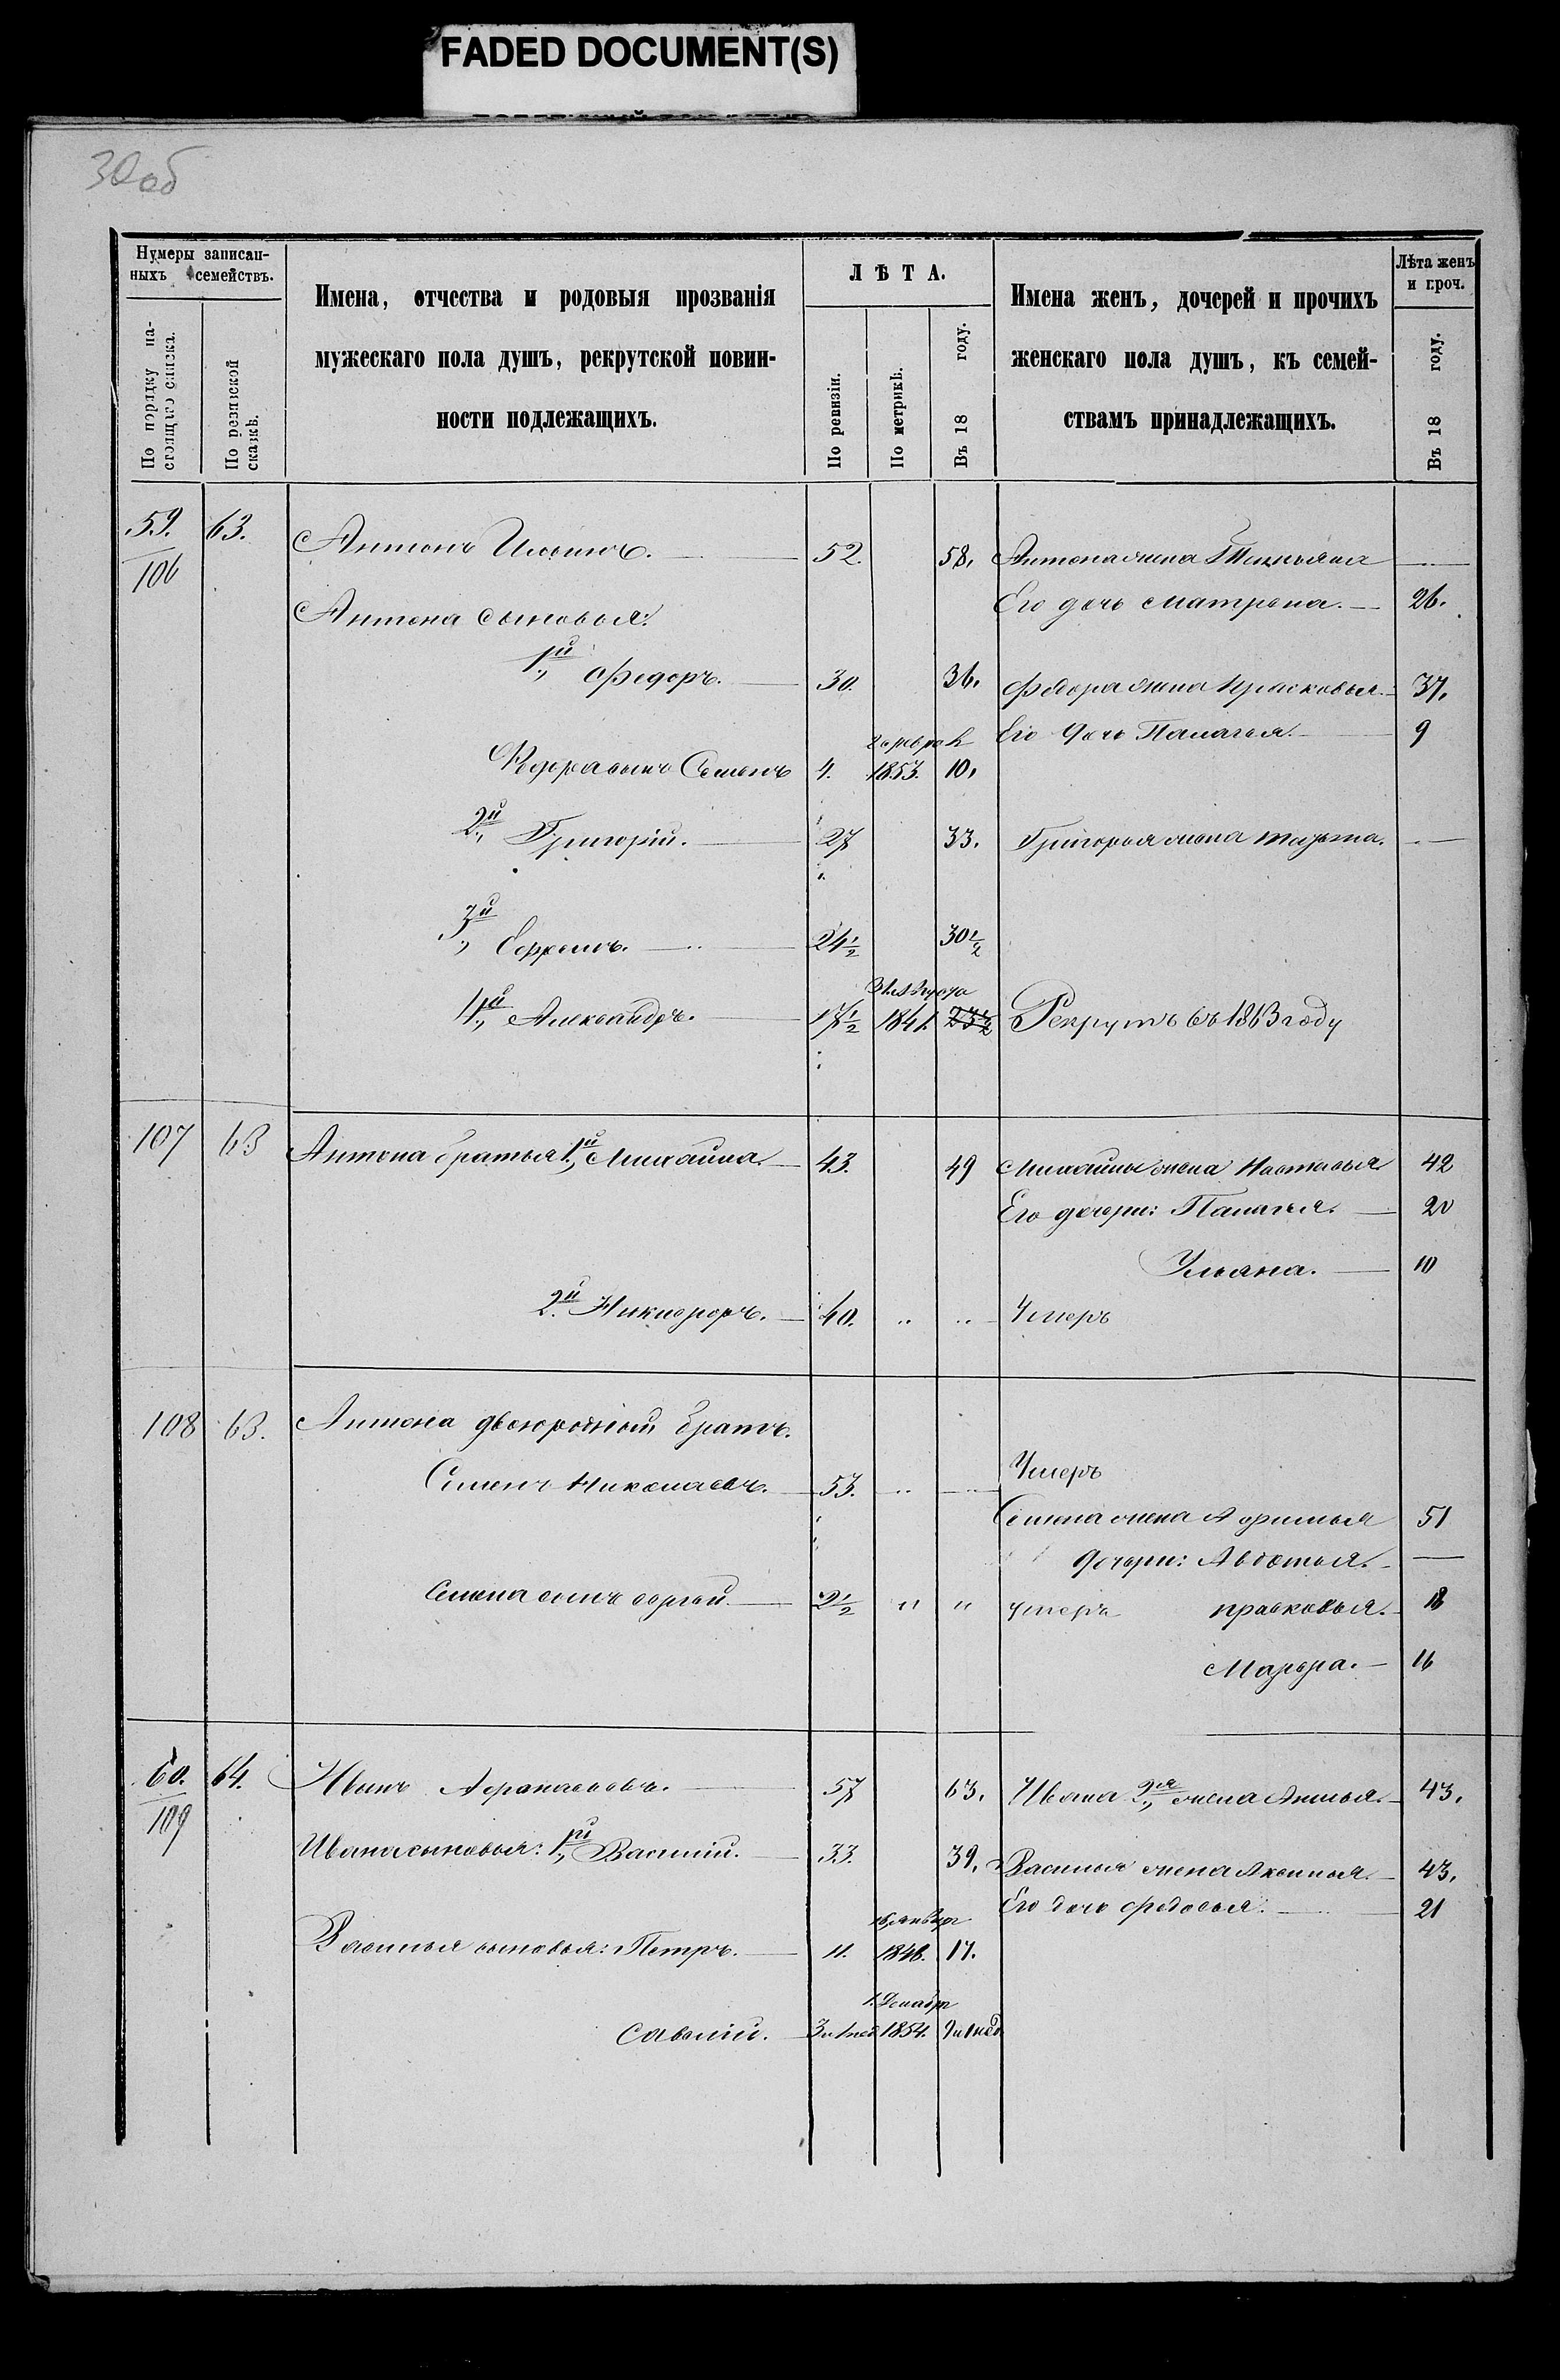 FADED DOCUMENT(S)
30 об
Нумеры записан-
ныхъ семействъ.
По порядку на-
стоящаго списка.
По ревизской
сказкѣ.
Имена, отчества и родовыя прозванія
мужескаго пола душъ, рекрутской повин-
ности подлежащихъ.
ЛѢТА.
По ревизіи.
По метрикѣ.
Въ 18 году.
Имена женъ, дочерей и прочихъ
женскаго пола душъ, къ семей-
ствамъ принадлежащихъ.
Лѣта женъ
и проч.
Въ 18 году.
59. 63. Антонъ Ильинъ. 52. 58. Антона жена Татьяна —
106
Антона сыновья: Его дочь Матрена. 26.
1й Федоръ. 30. 36. Федора жена Прасковья 37.
Его дочь Палагея. 9
Федора сынъ Семенъ 4. 1853. 10.
2й Григорій. 27 33. Григорья жена —
3й Ефремъ. 24 1/2 30 1/2
31 Августа
4й Александръ. 17 1/2 1841. 23 1/2 Рекрутъ въ 1863 году
107 63 Антона братья 1й Михайла. 43. 49 Михайлы жена Настасья 42
Его дочери: Палагея. 20
Ульяна. 10
2й Никифоръ. 40. " " Умеръ
108 63. Антона двоюродный братъ.
Семенъ Николаевъ. 53. " " Умеръ
Семена жена Афимья 51
дочери: Авдотья. —
Семена сынъ Сергей 2 1/2 " " умеръ прасковья. 18
Марфа. 16
60. 64. Иванъ Афанасьевъ. 57 63. Ивана 2я жена Анисья. 43.
109
Ивана сыновья: 1й Василій. 33. 39. Василья жена Аксинья. 43.
Его дочь Федосья. 21
Января
Василья сыновья: Петръ. 11. 1846. 17.
1. Декабря
Савелій. 3 и 1 нед. 1854. 9 и 1 нед.